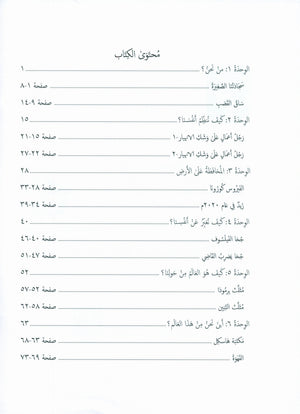 مُحتَوَى الكِتَاب
الوِحدَةُ ١: مَنْ نَحنُ؟ ١
سَجَّادَتُنَا الصَّغِيرَةُ صفحة ١-٨
سَاقُ القَصَبِ صفحة ٩-١٤
الوِحدَةُ ٢: كَيفَ نُنَظِّمُ أَنْفُسَنَا؟ ١٥
رَجُلُ أَعْمَالٍ عَلَى وَشَكِ الانهِيَارِ-١ صفحة ١٥-٢١
رَجُلُ أَعْمَالٍ عَلَى وَشَكِ الانهِيَارِ-٢ صفحة ٢٢-٢٧
الوِحدَةُ ٣: المُحَافَظَةُ عَلَى الأَرضِ ٢٨
الفَيْرُوس كُورُونَا صفحة ٢٨-٣٣
زَيدٌ فِي عَامِ ٢٠٢٠م صفحة ٣٤-٣٩
الوِحدَةُ ٤: كَيفَ نُعَبِّرُ عَنْ أَنْفُسِنَا؟ ٤٠
جُحَا الفَيلَسُوف صفحة ٤٠-٤٦
جُحَا يَضرِبُ القَاضِي صفحة ٤٧-٥١
الوِحدَةُ ٥: كَيفَ هُوَ العَالَمُ مِنْ حَولِنَا؟ ٥٢
مُثَلَّث بَرمُودَا صفحة ٥٢-٥٧
مُثَلَّث التِّنِّين صفحة ٥٨-٦٢
الوِحدَةُ ٦: أَينَ نَحنُ مِنْ هَذَا العَالَمِ؟ ٦٣
مَكتَبَة هَاسكل صفحة ٦٣-٦٨
القَهوَةُ صفحة ٦٩-٧٣